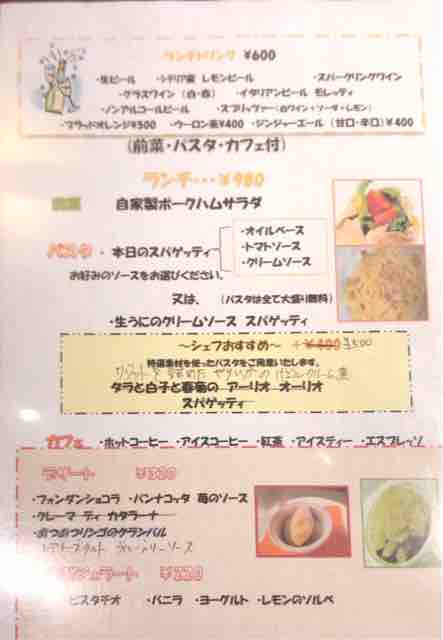 ランチドリンク ¥600
・生ビール ・シチリア産 レモンビール ・スパークリングワイン
・グラスワイン(白・赤) ・イタリアンビール モレッティ
・ノンアルコールビール ・スプリッツァー(白ワイン+ソーダ+レモン)
・ブラッドオレンジ¥500 ・ウーロン茶¥400 ・ジンジャーエール (甘口・辛口)¥400
(前菜・パスタ・カフェ付)
ランチ・・・¥980
前菜 自家製ポークハムサラダ
パスタ ・本日のスパゲッティ
・オイルベース
・トマトソース
・クリームソース
お好みのソースをお選びください。
又は、 (パスタは全て大盛り無料)
・生うにのクリームソース スパゲッティ
〜シェフおすすめ〜 +¥400 ¥500
特選素材を使ったパスタをご用意いたします。
タラと白子と春菊の アーリオ オーリオ
スパゲッティ
カフェ ・ホットコーヒー ・アイスコーヒー ・紅茶 ・アイスティー ・エスプレッソ
デザート ¥320
・フォンダンショコラ ・パンナコッタ 苺のソース
・クレーマ ディ カタラーナ
・あつあつリンゴのクランブル
ジェラート ¥220
ピスタチオ ・バニラ ・ヨーグルト ・レモンのソルベ